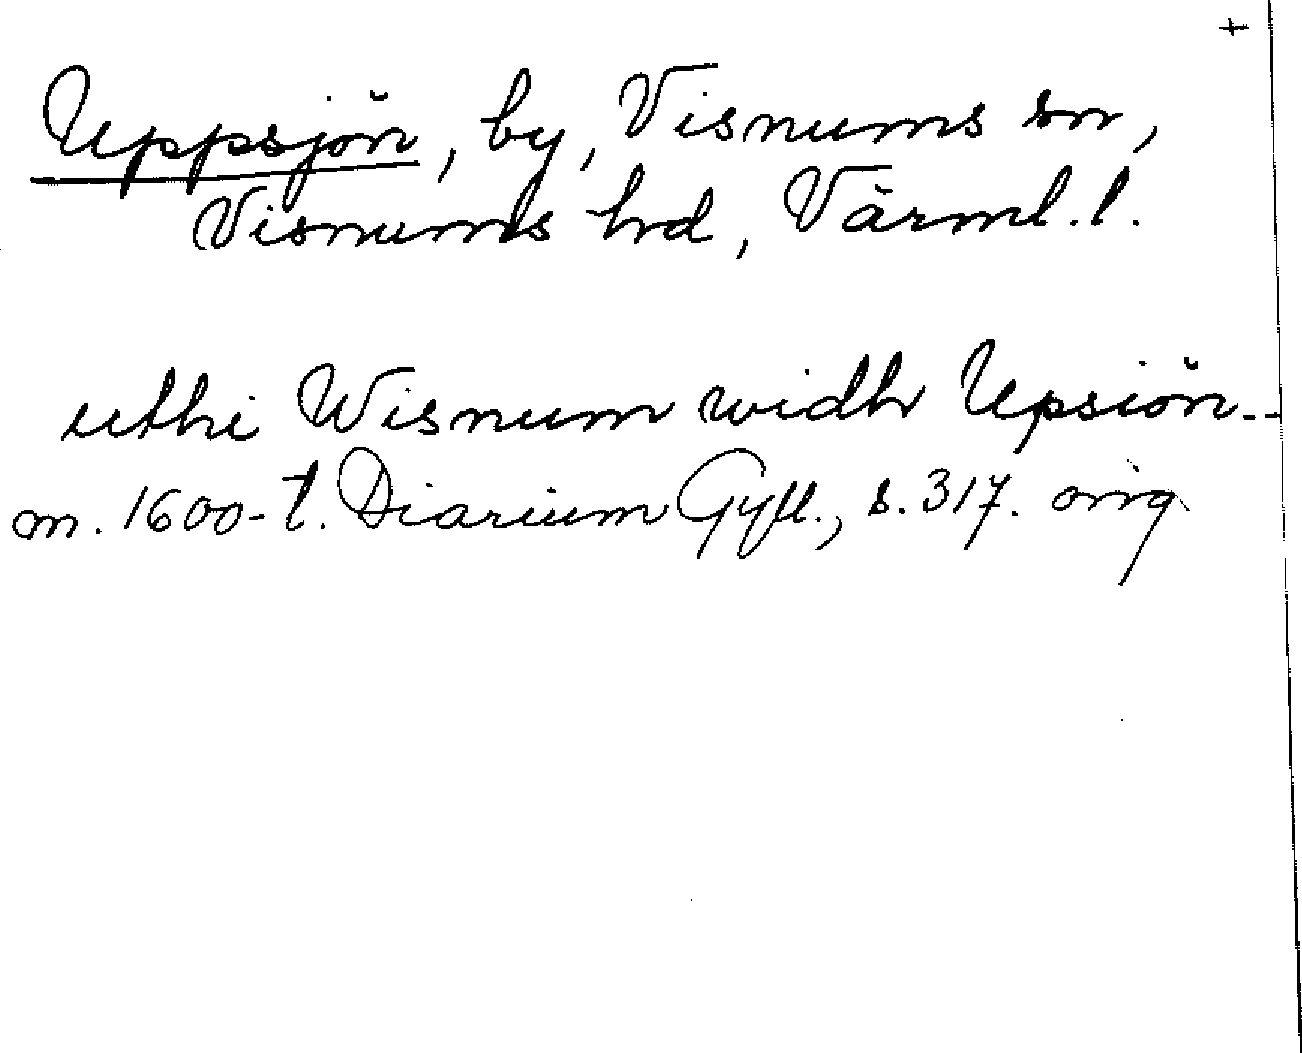 +
Uppsjön, by, Visnums sn,
Visnums hd, Värml. l.
uthi Wisnum widh Upsiön--
m. 1600-t. Diarium Gyll., s. 317. orig